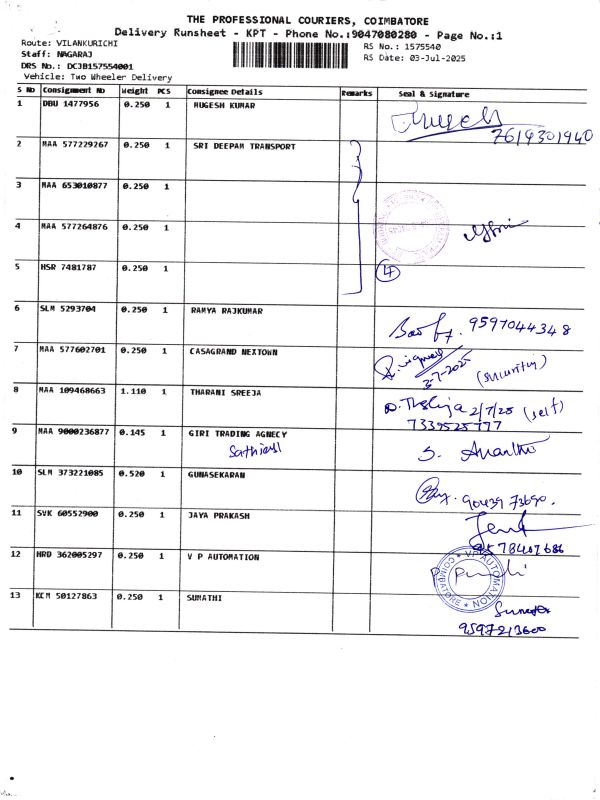 THE PROFESSIONAL COURIERS, COIMBATORE
Delivery Runsheet - KPT - Phone No.:9047080280 - Page No.:1
Route: VILANKURICHI
RS No.: 1575540
Staff: NAGARAJ
RS Date: 03-Jul-2025
DRS No.: DCJB157554001
Vehicle: Two Wheeler Delivery
S No Consignment No Weight PCS Consignee Details Remarks Seal & Signature
1 DBU 1477956 0.250 1 MUGESH KUMAR
7619301940
2 MAA 577229267 0.250 1 SRI DEEPAM TRANSPORT
3 MAA 653010877 0.250 1
4 MAA 577264876 0.250 1
5 HSR 7481787 0.250 1 4
6 SLM 5293704 0.250 1 RAMYA RAJKUMAR
9597044348
7 MAA 577602701 0.250 1 CASAGRAND NEXTOWN
3-7-2025 (security)
8 MAA 109468663 1.110 1 THARANI SREEJA
2/7/25 (self)
7339525777
9 MAA 9000236877 0.145 1 GIRI TRADING AGNECY
S. Anantha
10 SLM 373221085 0.520 1 GUNASEKARAN
90439 73690.
11 SVK 60552900 0.250 1 JAYA PRAKASH
9578407686
12 HRD 362005297 0.250 1 V P AUTOMATION
VP AUTOMATION
COIMBATORE
13 KCM 50127863 0.250 1 SUMATHI
9597213600